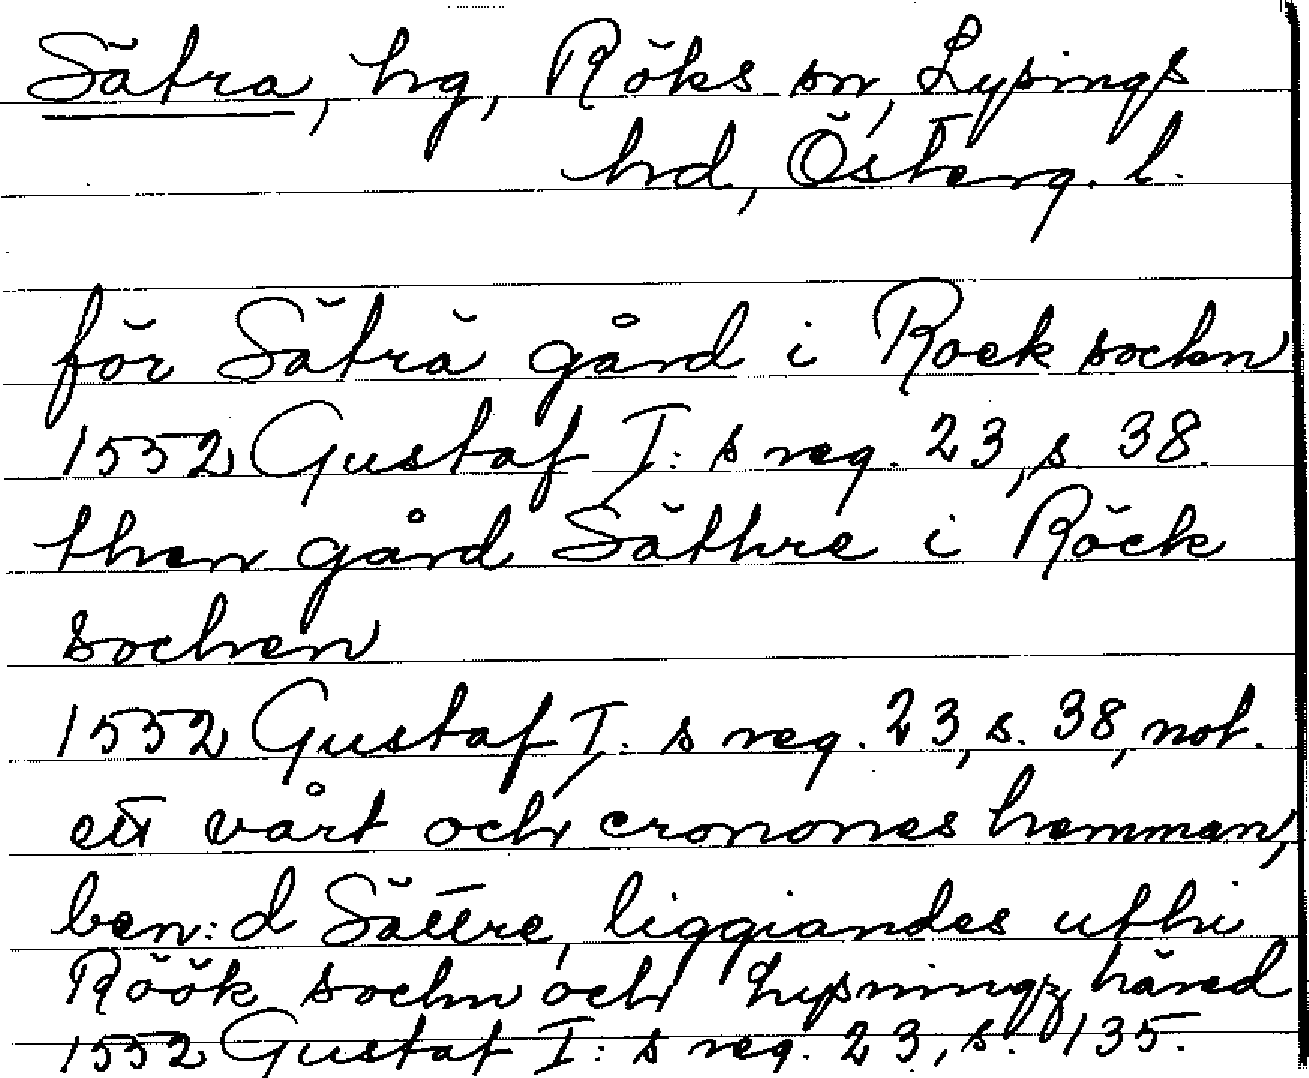 Sätra, hg, Röks sn, Lysings
hd, Österg. l.
för Säträ gård i Roek sockn
1552 Gustaf I: s reg. 23, s 38.
then gård Säthre i Röck
sochen
1552 Gustaf I: s reg. 23, s. 38, not.
ett vårt och cronones hemman,
ben:d Sättre, liggiandes uthi
Röök sochn och Lysningz häred
1552 Gustaf I: s reg. 23, s. 135.